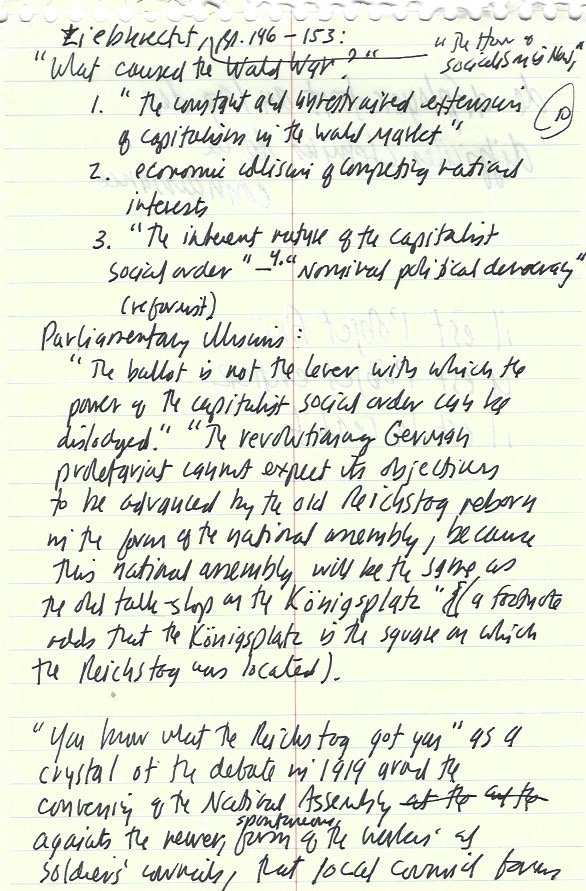 Liebknecht, pp. 146-153:
"What caused the World War?" "The Hour of
Socialism is Now,"
1. "the constant and unrestrained extension
of capitalism in the world market"
10
2. economic collision of competing national
interests
3. "The inherent nature of the capitalist
social order" – 4. "Nominal political democracy"
(reformist)
Parliamentary Illusions:
"The ballot is not the lever with which the
power of the capitalist social order can be
dislodged." "The revolutionary German
proletariat cannot expect its objectives
to be advanced by the old Reichstag reborn
in the form of the national assembly, because
this national assembly will be the same as
the old talk-shop on the Königsplatz" (a footnote
adds that the Königsplatz is the square on which
the Reichstag was located).
"You know what the Reichstag got you" as a
crystal of the debate in 1919 around the
convening of the National Assembly
against the newer, spontaneous form of the workers' and
soldiers' councils, that local council forms